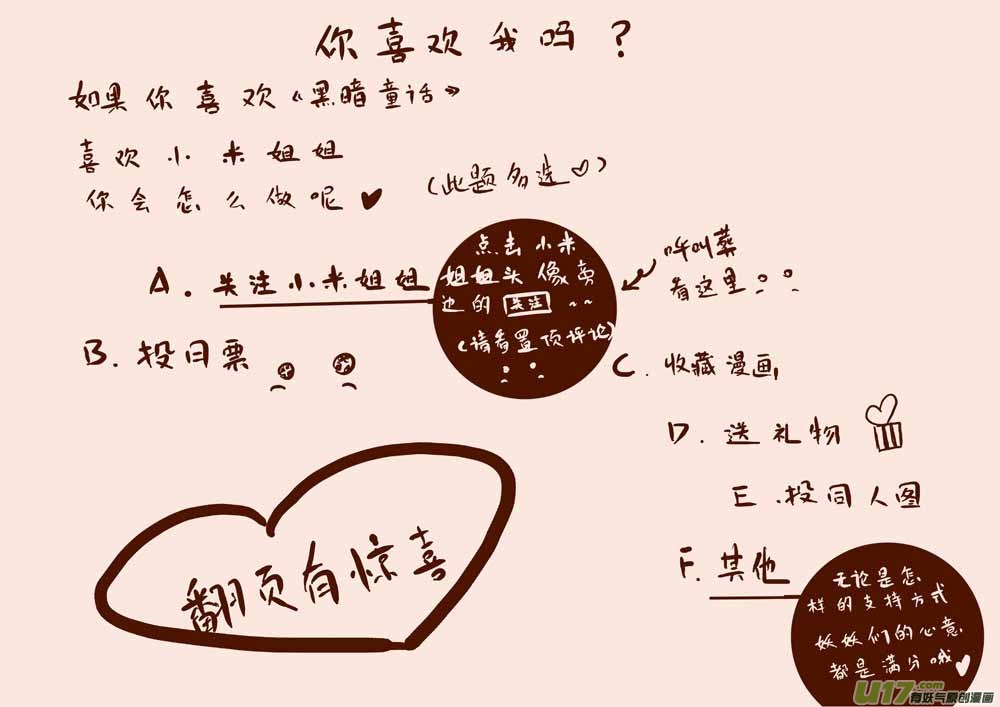 你喜欢我吗？
如果你喜欢《黑暗童话》
喜欢小米姐姐
你会怎么做呢
(此题多选)
A.关注小米姐姐
点击小米
姐姐头像旁
边的 关注 ~~
(请看置顶评论)
呼叫葬
看这里
B.投月票
C.收藏漫画
D.送礼物
E.投同人图
F.其他
无论是怎
样的支持方式
妖妖们的心意
都是满分哦
翻页有惊喜
U17.com
有妖气原创漫画